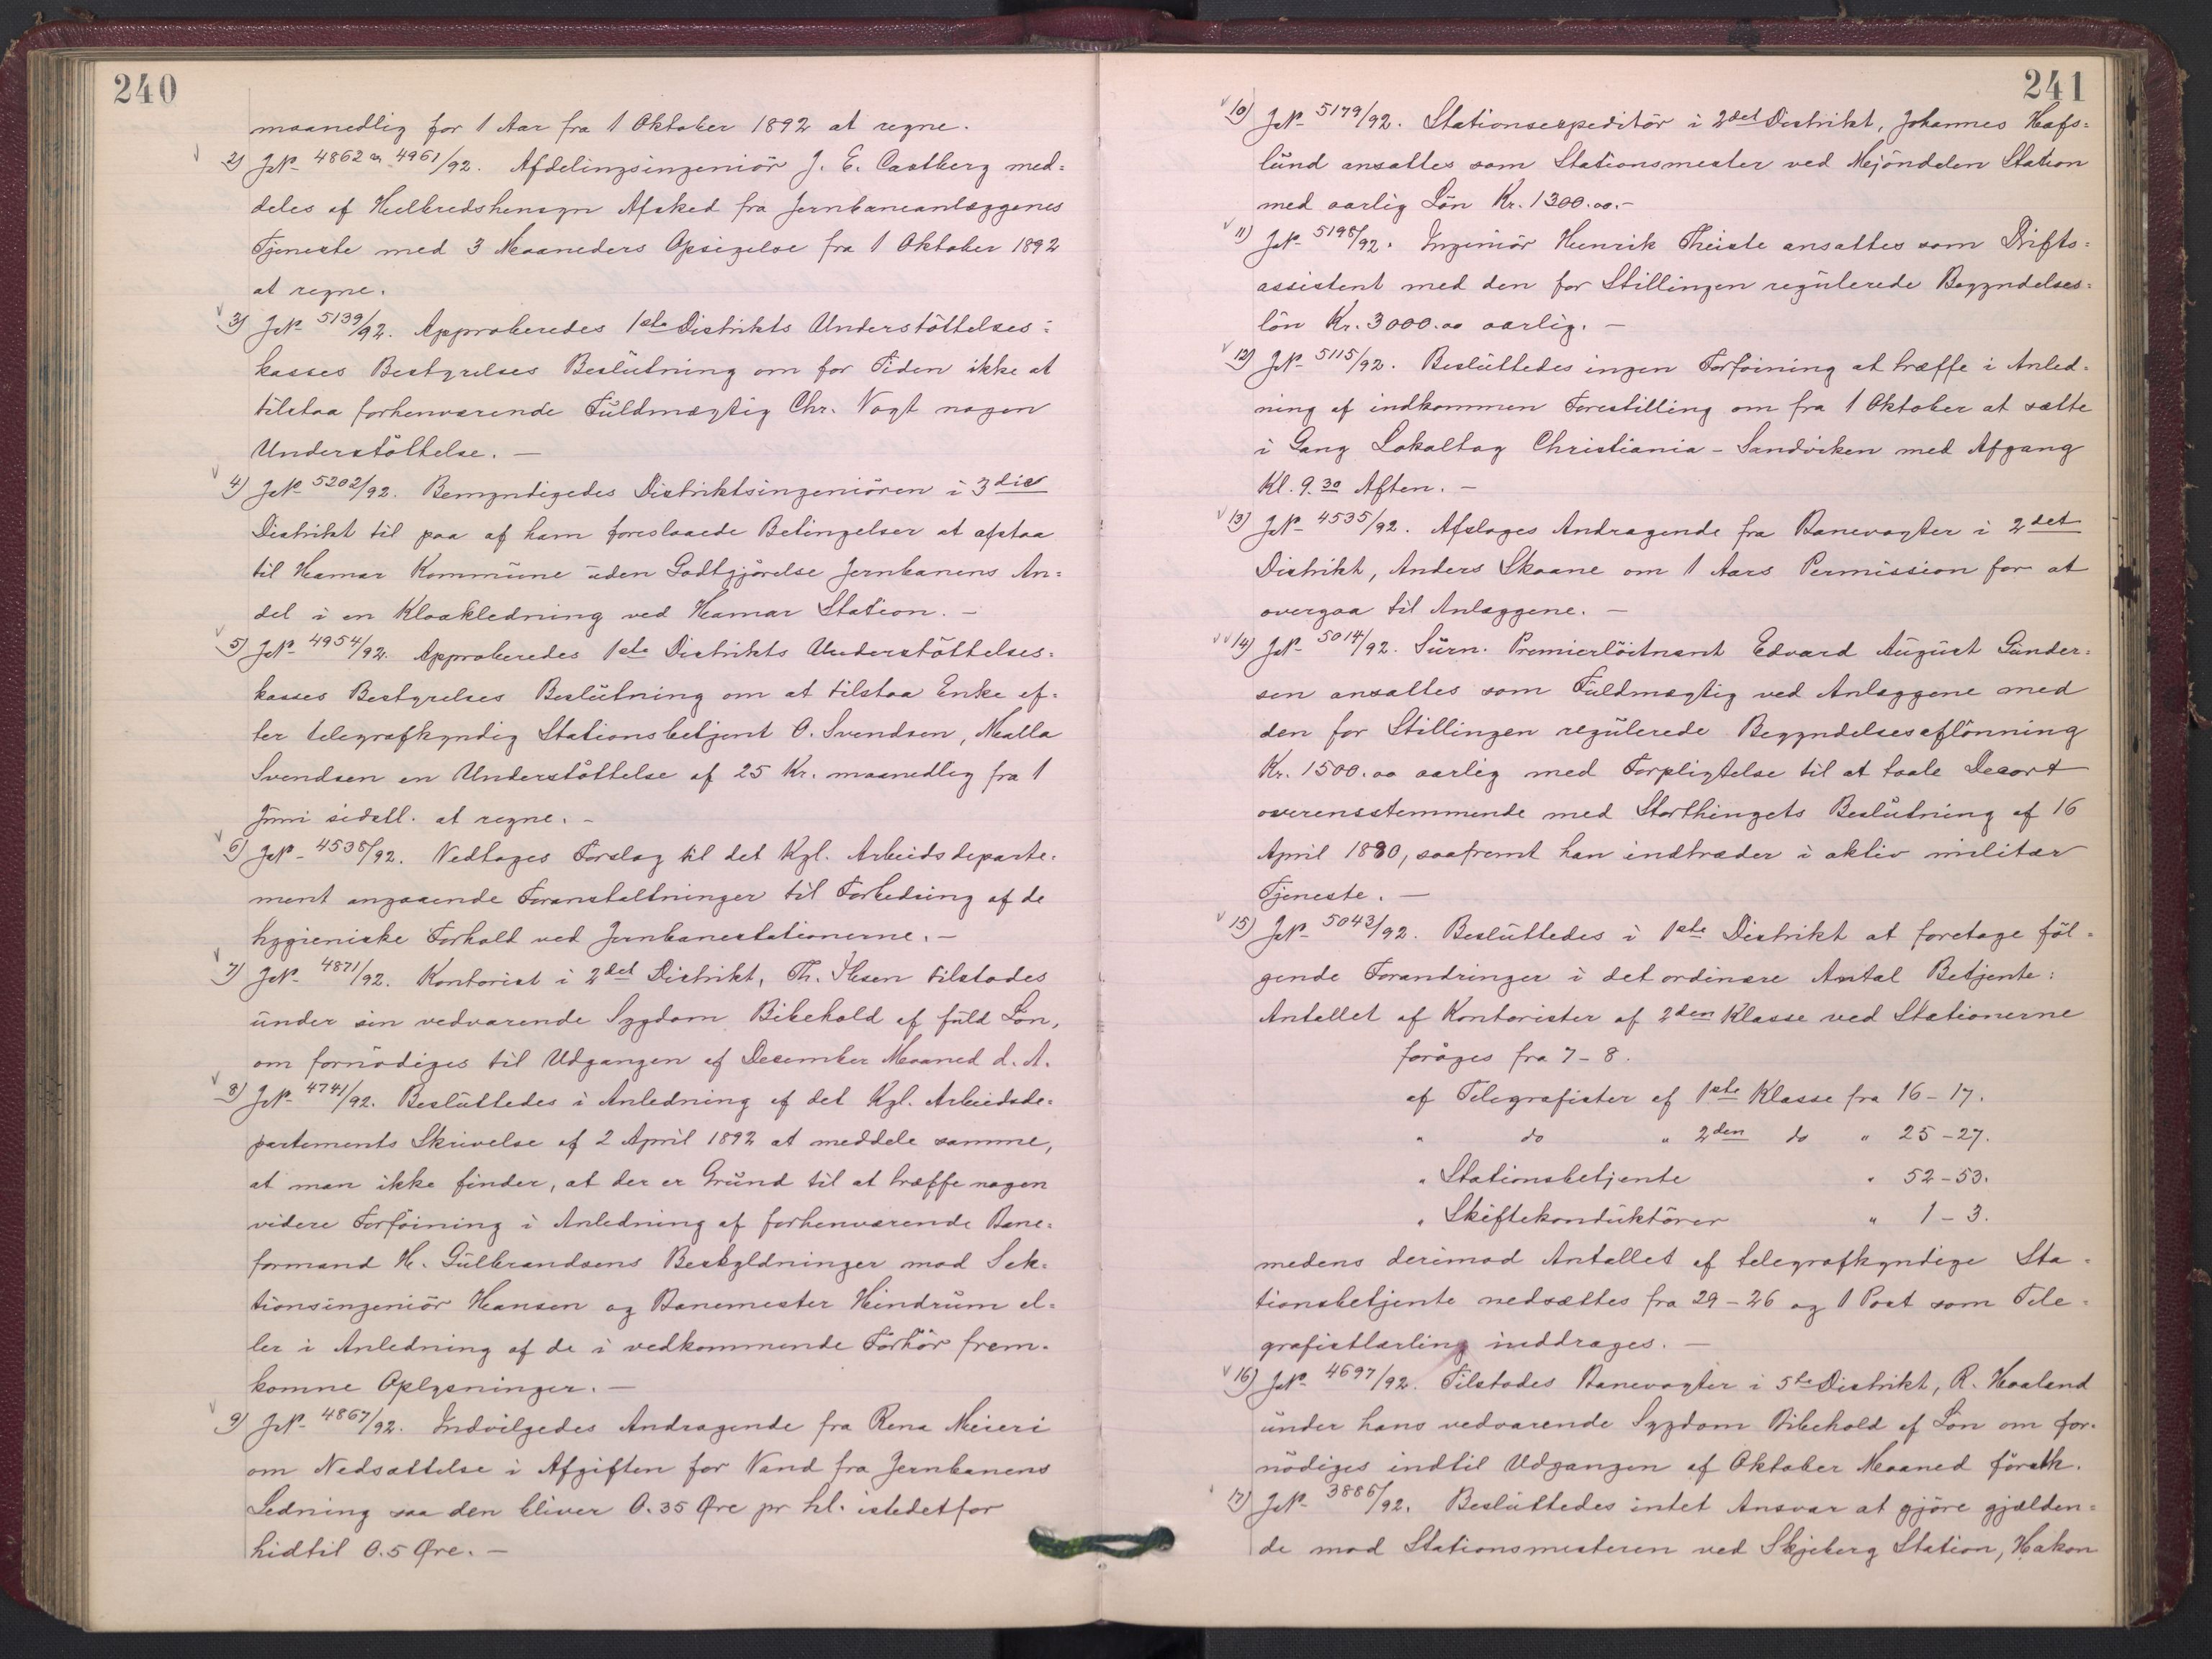 240
maanedlig for 1 Aar fra 1 Oktober 1892 at regne.
2) JN- 4862 og 4961/92. Afdelingsingeniör J. E. Castberg med=
deles af Helbredshensyn Afsked fra Jernbaneanlæggenes
Tjeneste med 3 Maaneders Opsigelse fra 1 Oktober 1892
at regne.
3) JN- 5139/92. Approberedes 1ste Distrikts Understöttelses=
kasses Bestyrelses Beslutning om for Tiden ikke at
tilstaa forhenværende Fuldmægtig Chr. Vogt nogen
Understöttelse. -
4) JN- 5202/92. Bemyndigedes Distriktsingeniören i 3die
Distrikt til paa af ham foreslaaede Betingelser at afstaa
til Hamar Kommune uden Godtgjörelse Jernbanens An=
del i en Kloakledning ved Hamar Station. -
5) JN- 4954/92. Approberedes 1ste Distrikts Understöttelses=
kasses Bestyrelses Beslutning om at tilstaa Enke ef=
ter telegrafkyndig Stationsbetjent O. Svendsen, Malla
Svendsen en Understöttelse af 25 Kr. maanedlig fra 1
Juni sidstl. at regne. -
6) JN- 4538/92. Vedtoges Forslag til det Kgl. Arbeidsdeparte=
ment angaaende Foranstaltninger til Forbedring af de
hygieniske Forhold ved Jernbanestationerne. -
7) JN- 4871/92. Kontorist i 2det Distrikt, Th. Ibsen tilstodes
under sin vedvarende Sygdom Bibehold af fuld Lön,
om fornödiges til Udgangen af December Maaned d. A.
8) JN- 4741/92. Besluttedes i Anledning af det Kgl. Arbeidsde=
partements Skrivelse af 2 April 1892 at meddele samme,
at man ikke finder, at der er Grund til at træffe nogen
videre Forföining i Anledning af forhenværende Bane=
formand H. Gulbrandsens Beskyldninger mod Sek=
tionsingeniör Hansen og Banemester Hindrum el=
ler i Anledning af de i vedkommende Forhör frem=
komne Oplysninger. -
9) JN- 4867/92. Indvilgedes Andragende fra Rena Meieri
om Nedsættelse i Afgiften for Vand fra Jernbanens
Ledning saa den bliver 0.35 Øre pr hl. istedetfor
hidtil 0.5 Øre. -
241
10) JN- 5179/92. Stationsexpeditör i 2det Distrikt, Johannes Hafs=
lund ansattes som Stationsmester ved Mjöndalen Station
med aarlig Lön Kr. 1300.00.-
11) JN- 5198/92. Ingeniör Henrik Theiste ansattes som Drifts=
assistent med den for Stillingen regulerede Begyndelses=
lön Kr. 3000.00 aarlig. -
12) JN- 5115/92. Besluttedes ingen Forföining at træffe i Anled=
ning af indkommen Forestilling om fra 1 Oktober at sætte
i Gang Lokaltog Christiania - Sandviken med Afgang
Kl. 9.30 Aften. -
13) JN- 4535/92. Afsloges Andragende fra Banevogter i 2det
Distrikt, Anders Skaane om 1 Aars Permission for at
overgaa til Anlæggene. -
14) JN- 5014/92. Surn. Premierlöitnant Edvard August Gunder=
sen ansattes som Fuldmægtig ved Anlæggene med
den for Stillingen regulerede Begyndelsesaflönning
Kr. 1500.00 aarlig med Forpligtelse til at taale Decort
overensstemmende med Storthingets Beslutning af 16
April 1880, saafremt han indtræder i aktiv militær
Tjeneste. -
15) JN- 5043/92. Besluttedes i 1ste Distrikt at foretage föl=
gende Forandringer i det ordinære Antal Betjente:
Antallet af Kontorister af 2den Klasse ved Stationerne
foröges fra 7 - 8.
af Telegrafister af 1ste Klasse fra 16 - 17.
" do " 2den do " 25 - 27.
" Stationsbetjente " 52 - 53.
" Skiftekonduktörer " 1 - 3.
medens derimod Antallet af telegrafkyndige Sta=
tionsbetjente nedsættes fra 29 - 26 og 1 Post som Tele=
grafistlærling inddrages. -
16) JN- 4697/92. Tilstodes Banevogter i 5te Distrikt, R. Haaland
under hans vedvarende Sygdom Bibehold af Lön om for=
nödiges indtil Udgangen af Oktober Maaned förstk.
17) JN- 3886/92. Besluttedes intet Ansvar at gjöre gjælden=
de mod Stationsmesteren ved Skjeberg Station, Hakon